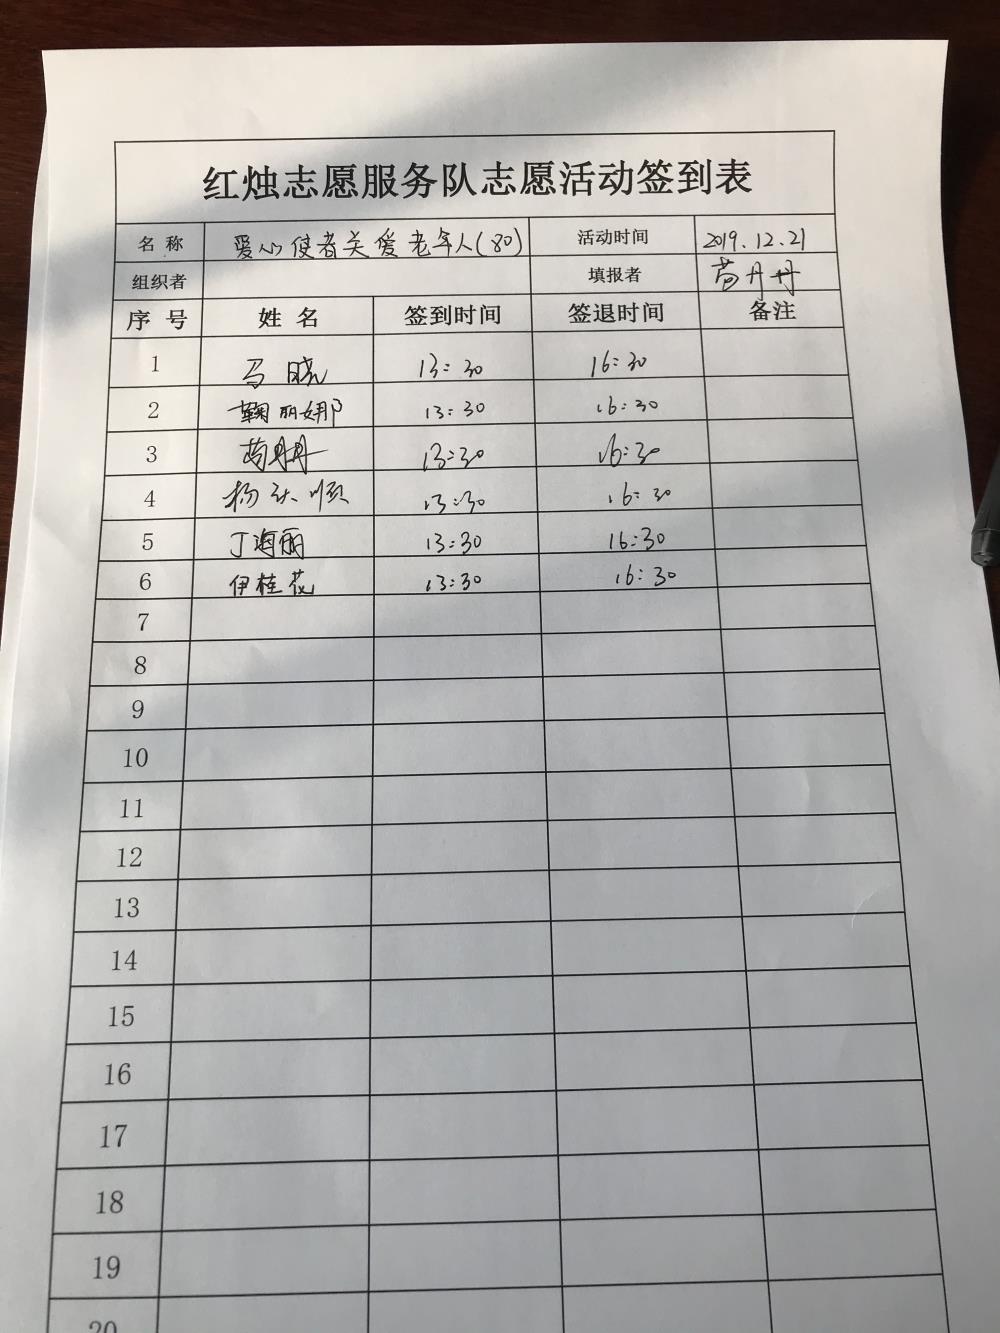 红烛志愿服务队志愿活动签到表
名 称 爱心使者关爱老年人(80) 活动时间 2019.12.21
组织者 填报者 苗丹丹
序 号 姓 名 签到时间 签退时间 备注
1 马晓 13:30 16:30
2 鞠丽娜 13:30 16:30
3 苗丹丹 13:30 16:30
4 杨 顺 13:30 16:30
5 丁海丽 13:30 16:30
6 伊桂花 13:30 16:30
7
8
9
10
11
12
13
14
15
16
17
18
19
20